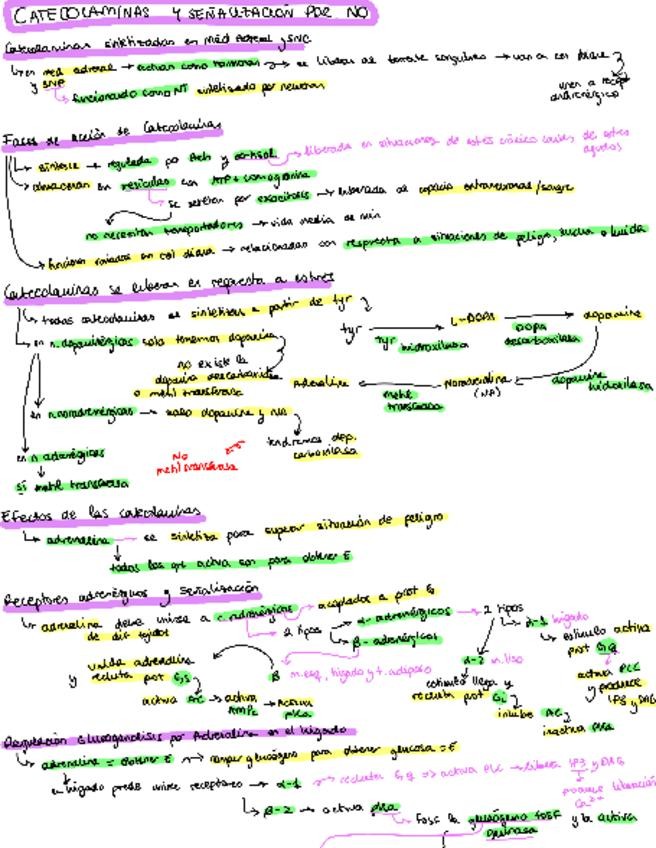 CATECOLAMINAS Y SEÑALIZACIÓN POR NO
Catecolaminas sintetizadas en méd adrenal y SNC
↳ en med adrenal → actúan como hormonas → se liberan al torrente sanguíneo → van a cel diana
y SNP
↳ funcionando como NT sintetizado por neuronas
unen a recep
adrenérgico
Fases de acción de Catecolaminas
↳ síntesis → regulada por Ach y cortisol → liberada en situaciones de estrés crónico
agudos
↳ almacenan en vesículas con ATP + cromogranina
↳ se secretan por exocitosis → liberada al espacio /sangre
no necesitan transportadores → vida media de min
↳ funciones variadas en cel diana → relacionadas con respuesta a situaciones de peligo, lucha o huida
Catecolaminas se liberan en respuesta a estrés
↳ todas catecolaminas se sintetizan a partir de tyr
tyr → L-DOPA → dopamina
tyr hidroxilasa
DOPA
descarboxilasa
↳ en n. dopaminérgicas solo tenemos dopamina
no existe la
o metil transferasa
Adrenalina ← Noradrenalina
(NA)
metil
transferasa
dopamina
hidroxilasa
en n. noradrenérgicas → solo dopamina y NA
en n adrenérgicas
No
metil transferasa
tendremos dop.
carboxilasa
sí metil transferasa
Efectos de las catecolaminas
↳ adrenalina → se sintetiza para superar situación de peligro
todas las que activa son para obtener E
Receptores adrenérgicos y señalización
↳ adrenalina debe unirse a r. adrenérgicos → acoplados a prot G
de dif tejidos
↳ 2 tipos → α-adrenérgicos → 2 tipos
↳ β-adrenérgicos
↳ α-1 hígado
↳ estímulo activa
prot Gq
activa PLC
y produce
IP3 y DAG
unida adrenalina
y recluta prot Gs
β m. esq, hígado y t. adiposo
α-2 m. liso
estímulo llega y
recluta prot Gi
activa AC → activa
AMPc → activa
PKA
inhibe AC
inactiva PKA
Regulación Glucogenolisis por Adrenalina en el hígado
↳ adrenalina = obtener E → romper glucógeno para obtener glucosa = E
en hígado puede unirse receptores → α-1 → recluta Gq => activa PLC → libera IP3 y DAG
produce liberación
Ca²⁺
↳ β-2 → activa PKA → fosf la glucógeno fosf y la activa
quinasa